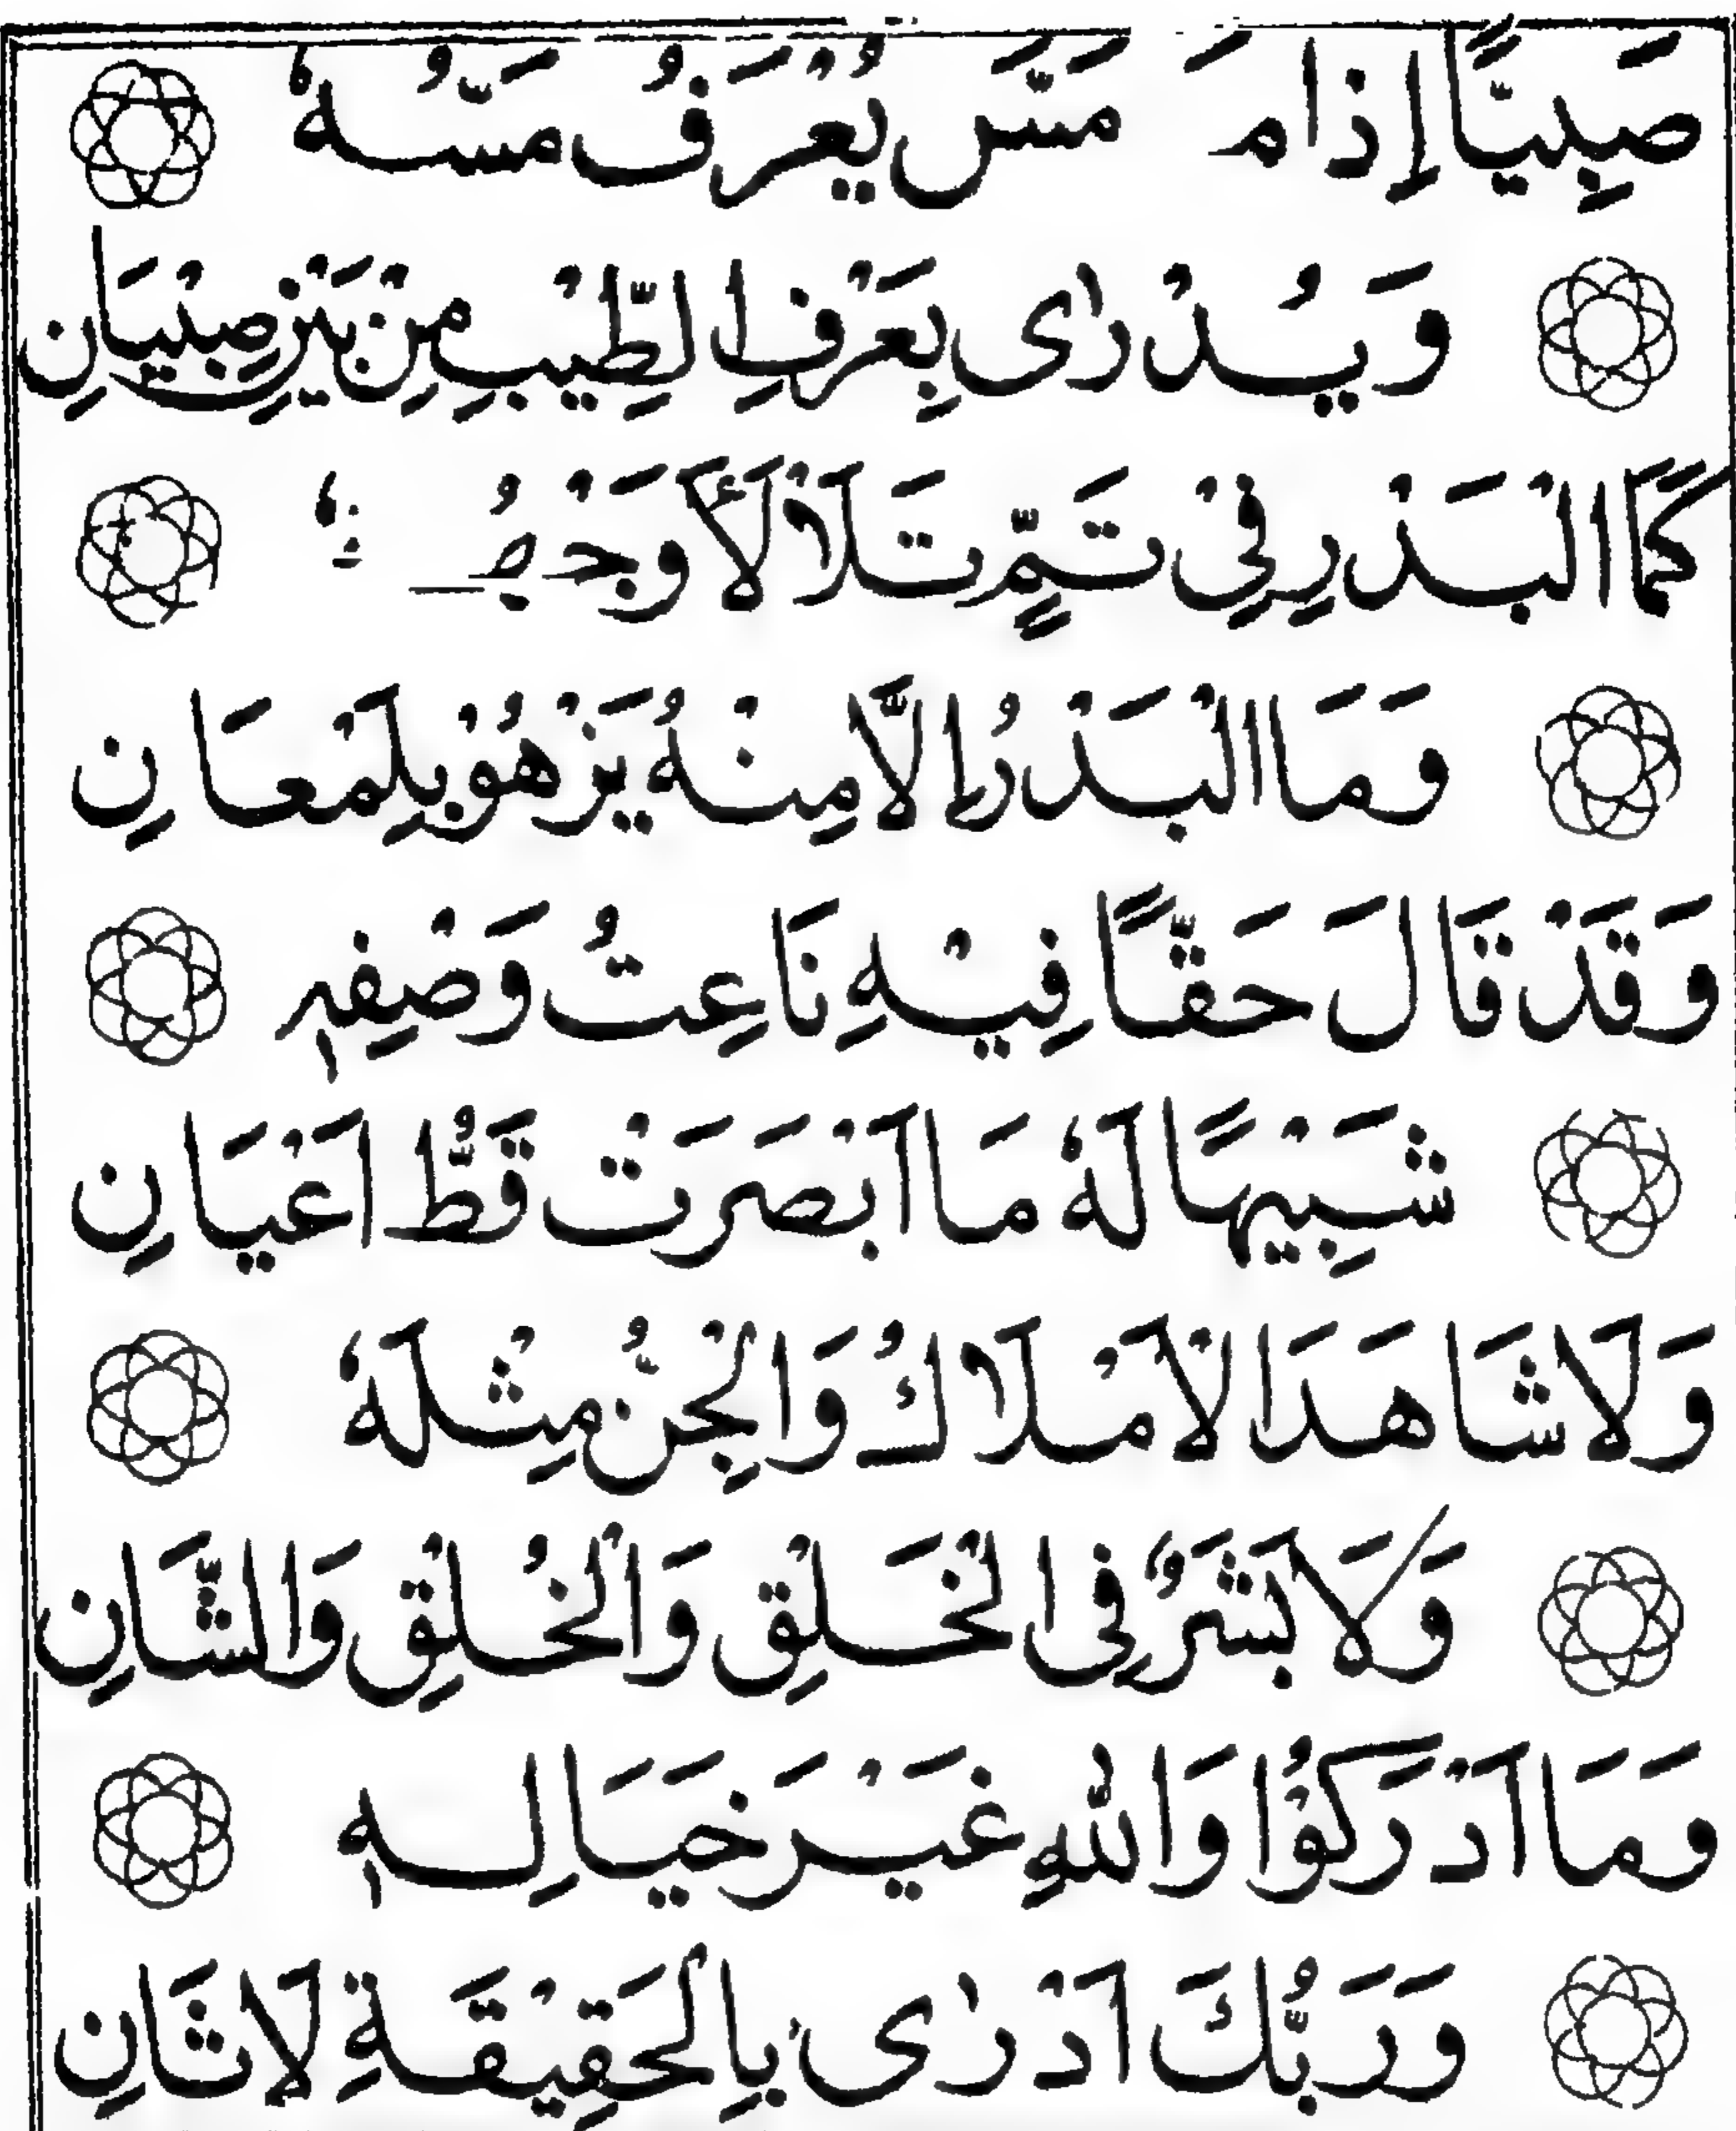 صَبِيًّا إِذَا مَا مَسَّ يُعْرَفُ مَسُّهٗ
وَيُدْرٰى بِعَرْفِ الطِّيْبِ مِنْ بَيْنِ صِبْيَانِ
كَمَا الْبَدْرِ فِيْ تَمٍّ تَلَاْلَأَ وَجْهُهٗ
وَمَا الْبَدْرُ اِلَّا مِنْهُ يَزْهُوْ بِلَمْعَانِ
وَقَدْ قَالَ حَقًّا فِيْهِ نَاعِتُ وَصْفِهٖ
شَبِيْهًا لَهٗ مَا اَبْصَرَتْ قَطُّ اَعْيَانِ
وَلَا شَاهَدَ الْاَمْلَاكُ وَالْجِنُّ مِثْلَهٗ
وَلَا بَشَرٌ فِى الْخَلْقِ وَالْخُلْقِ وَالشَّانِ
وَمَا اَدْرَكُوْا وَاللّٰهِ غَيْرَ خَيَالِهٖ
وَرَبُّكَ اَدْرٰى بِالْحَقِيْقَةِ لَا ثَانِ